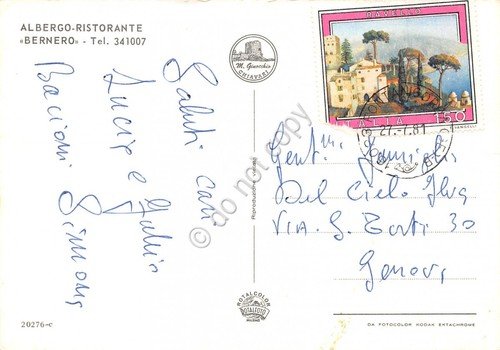 ALBERGO-RISTORANTE
«BERNERO» - Tel. 341007
M. Gnocchi
CHIAVARI
RAVELLO
ITALIA 150
27.-7.81
Saluti cari
Lucia e Fulvio
Bacioni Simona
Gent.ma Famiglia
Del Cielo Elva
VIA G. Torti 30
Genova
Riproduzione vietata
do not copy
ROTALCOLOR
ROTALFOTO
MILANO
20276-c
DA FOTOCOLOR KODAK EKTACHROME